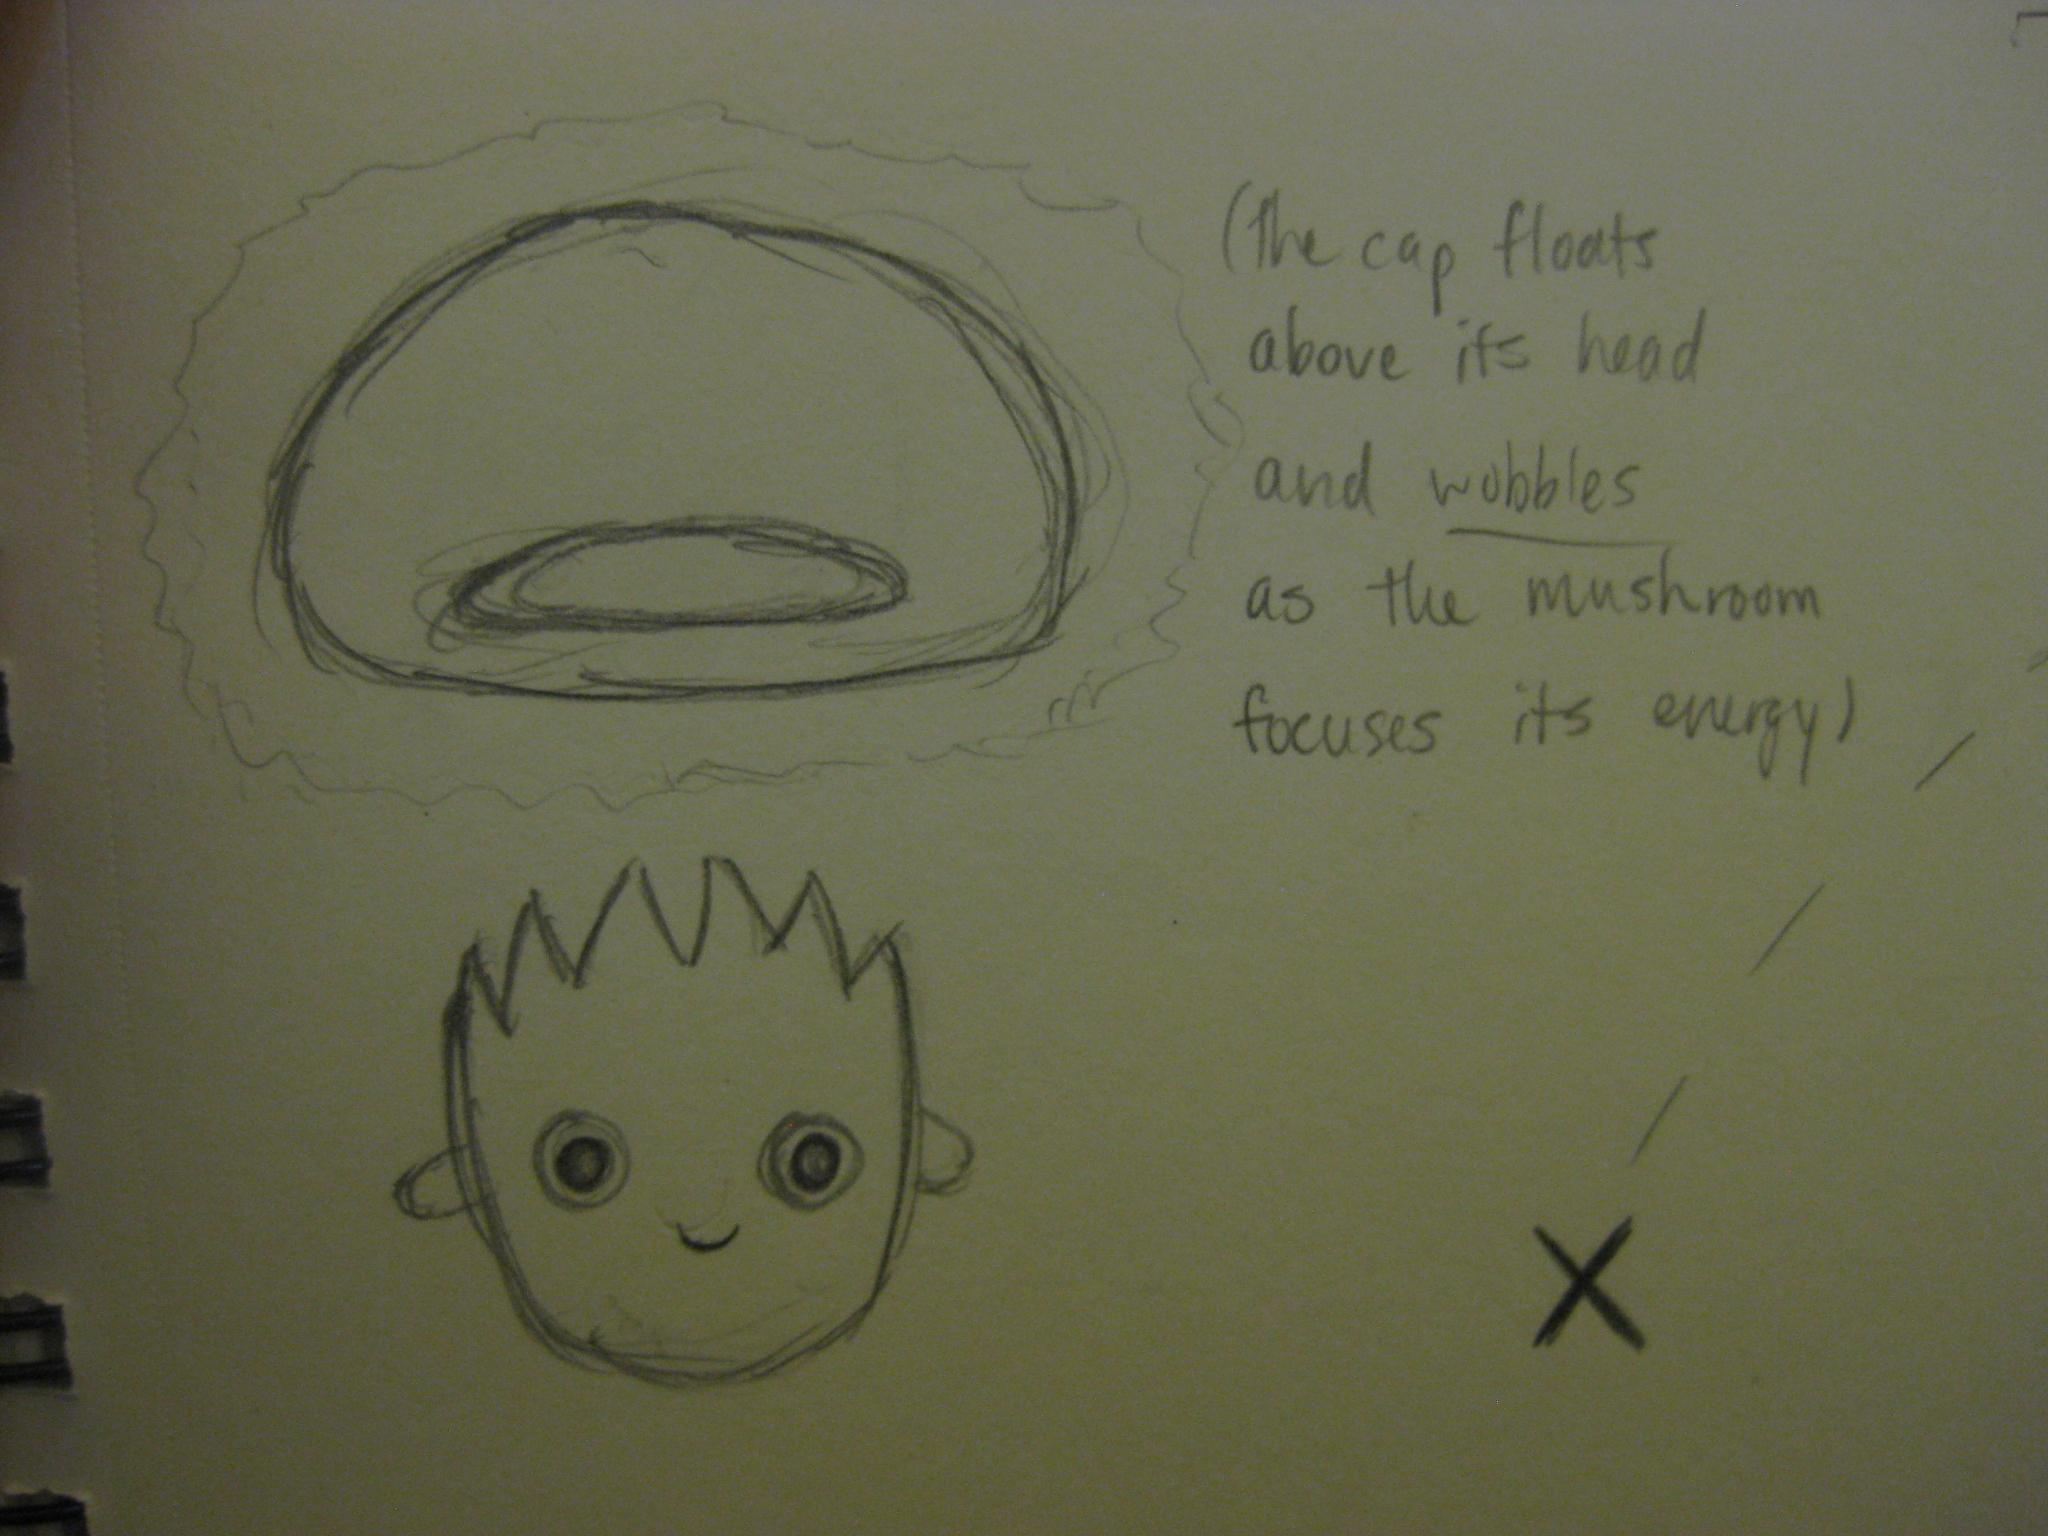 (The cap floats
above its head
and wobbles
as the mushroom
focuses its energy)
X